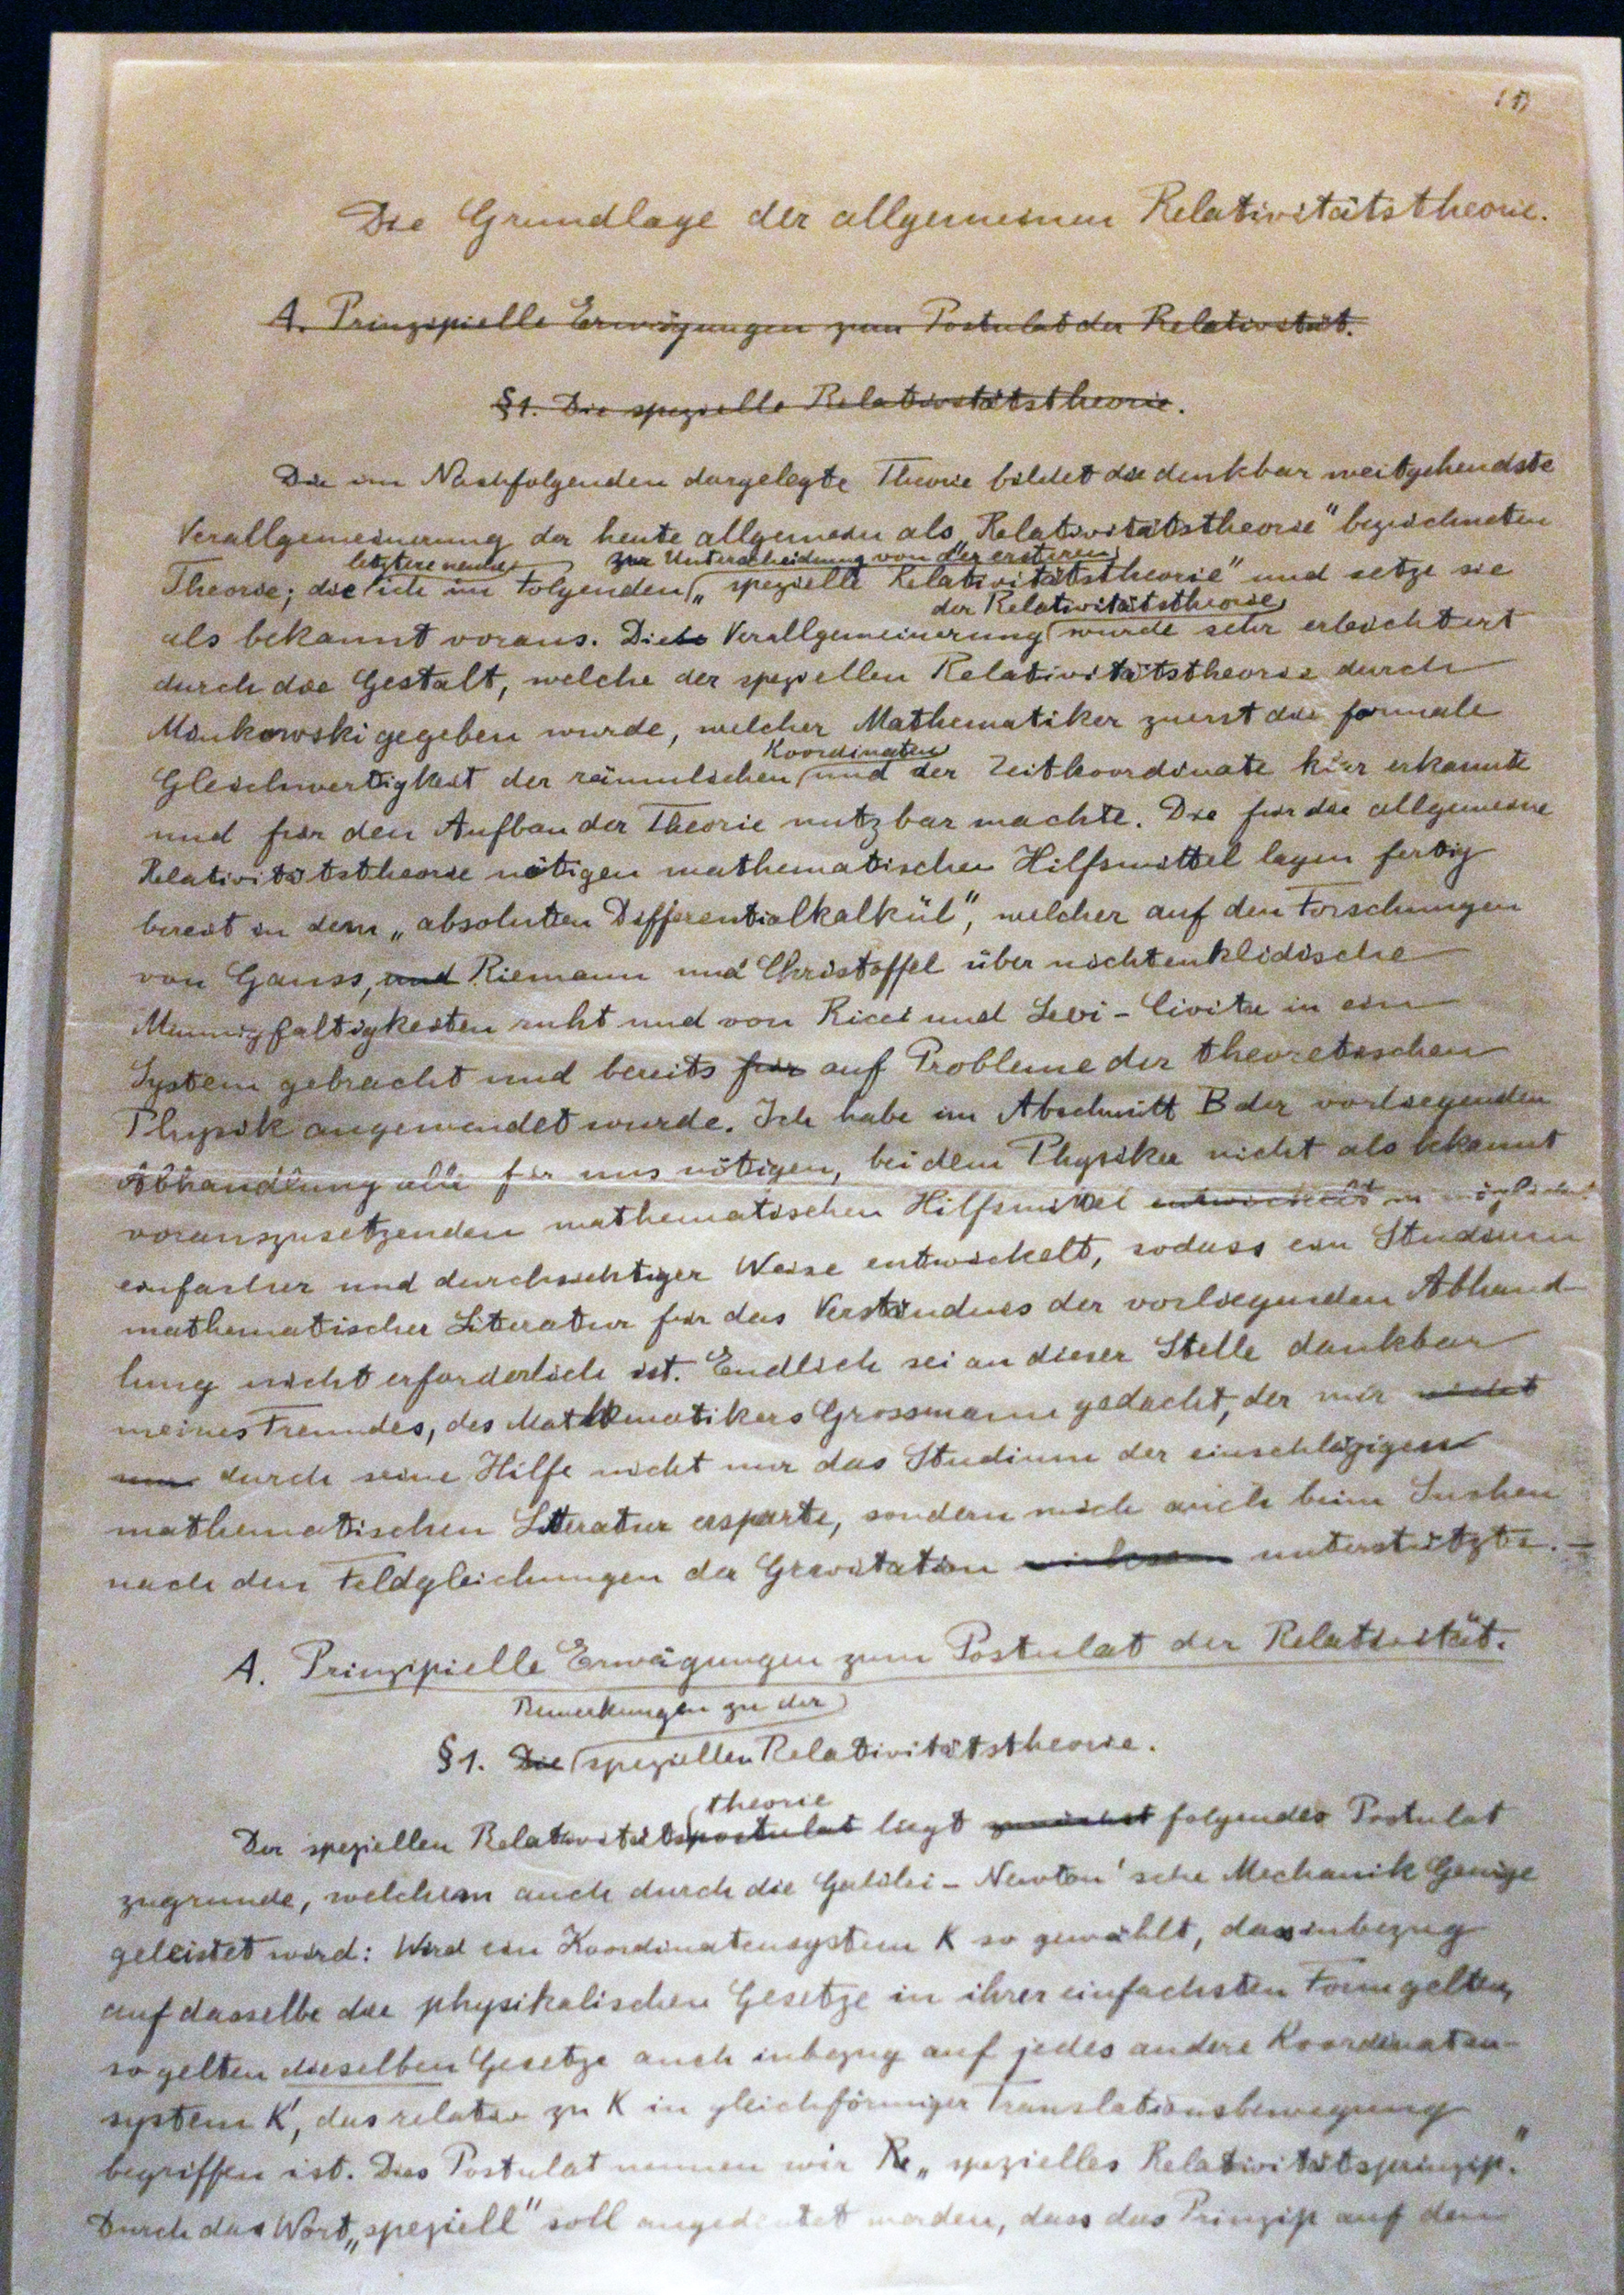 (1)
Die Grundlage der allgemeinen Relativitätstheorie.
A. Prinzipielle Erwägungen zum Postulat der Relativität.
§1. Die spezielle Relativitätstheorie.
Die im Nachfolgenden dargelegte Theorie bildet die denkbar weitgehendste
Verallgemeinerung der heute allgemein als „Relativitätstheorie" bezeichneten
letztere nenne zur Unterscheidung von der ersteren
Theorie; die ich im Folgenden „spezielle Relativitätstheorie" und setze sie
der Relativitätstheorie
als bekannt voraus. Diese Verallgemeinerung wurde sehr erleichtert
durch die Gestalt, welche der speziellen Relativitätstheorie durch
Minkowski gegeben wurde, welcher Mathematiker zuerst die formale
Koordinaten
Gleichwertigkeit der räumlichen und der Zeitkoordinate klar erkannte
und für den Aufbau der Theorie nutzbar machte. Die für die allgemeine
Relativitätstheorie nötigen mathematischen Hilfsmittel lagen fertig
bereit in dem „absoluten Differentialkalkül", welcher auf den Forschungen
von Gauss, und Riemann und Christoffel über nichteuklidische
Mannigfaltigkeiten ruht und von Ricci und Levi-Civita in ein
System gebracht und bereits für auf Probleme der theoretischen
Physik angewendet wurde. Ich habe im Abschnitt B der vorliegenden
Abhandlung alle für uns nötigen, bei dem Physiker nicht als bekannt
vorauszusetzenden mathematischen Hilfsmittel entwickelt in möglichst
einfacher und durchsichtiger Weise entwickelt, sodass ein Studium
mathematischer Literatur für das Verständnis der vorliegenden Abhand-
lung nicht erforderlich ist. Endlich sei an dieser Stelle dankbar
meines Freundes, des Mathematikers Grossmann gedacht, der mir nicht
nur durch seine Hilfe nicht nur das Studium der einschlägigen
mathematischen Literatur ersparte, sondern mich auch beim Suchen
nach den Feldgleichungen der Gravitation unterstützte. —
A. Prinzipielle Erwägungen zum Postulat der Relativität.
Bemerkungen zu der
§1. Die speziellen Relativitätstheorie.
theorie
Der speziellen Relativitätspostulat liegt zunächst folgendes Postulat
zugrunde, welchem auch durch die Galilei-Newton'sche Mechanik Genüge
geleistet wird: Wird ein Koordinatensystem K so gewählt, dass inbezug
auf dasselbe die physikalischen Gesetze in ihrer einfachsten Form gelten,
so gelten dieselben Gesetze auch inbezug auf jedes andere Koordinaten-
system K', das relativ zu K in gleichförmiger Translationsbewegung
begriffen ist. Dies Postulat nennen wir Re „spezielles Relativitätsprinzip."
Durch das Wort „speziell" soll angedeutet werden, dass das Prinzip auf den